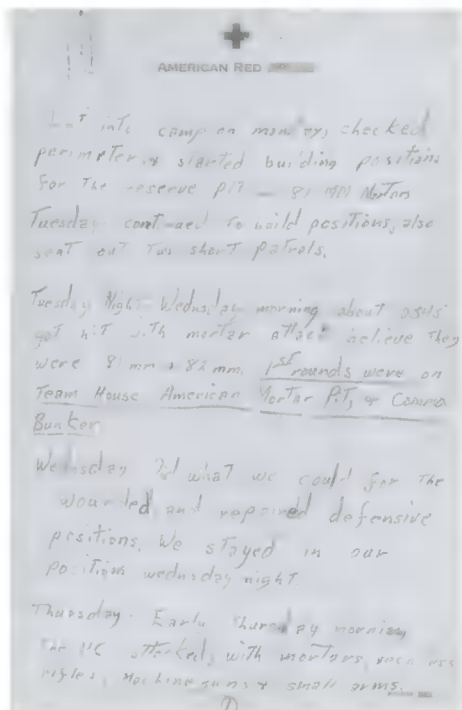 AMERICAN RED
into camp on monday, checked
perimeter, & started building positions
for the reserve PIT - 81 MM Mortars
Tuesday continued to build positions, also
sent out two short patrols.
Tuesday Night Wednesday morning about
got hit with mortar attack believe they
were 81mm & 82mm. 1st rounds were on
Team House American Mortar PIT, & Commo
Bunker
Wednesday Did what we could for the
wounded and repaired defensive
positions. We stayed in our
positions wednesday night.
Thursday. Early Thursday morning
The VC attacked with mortars,
rifles, Machine guns & small arms.